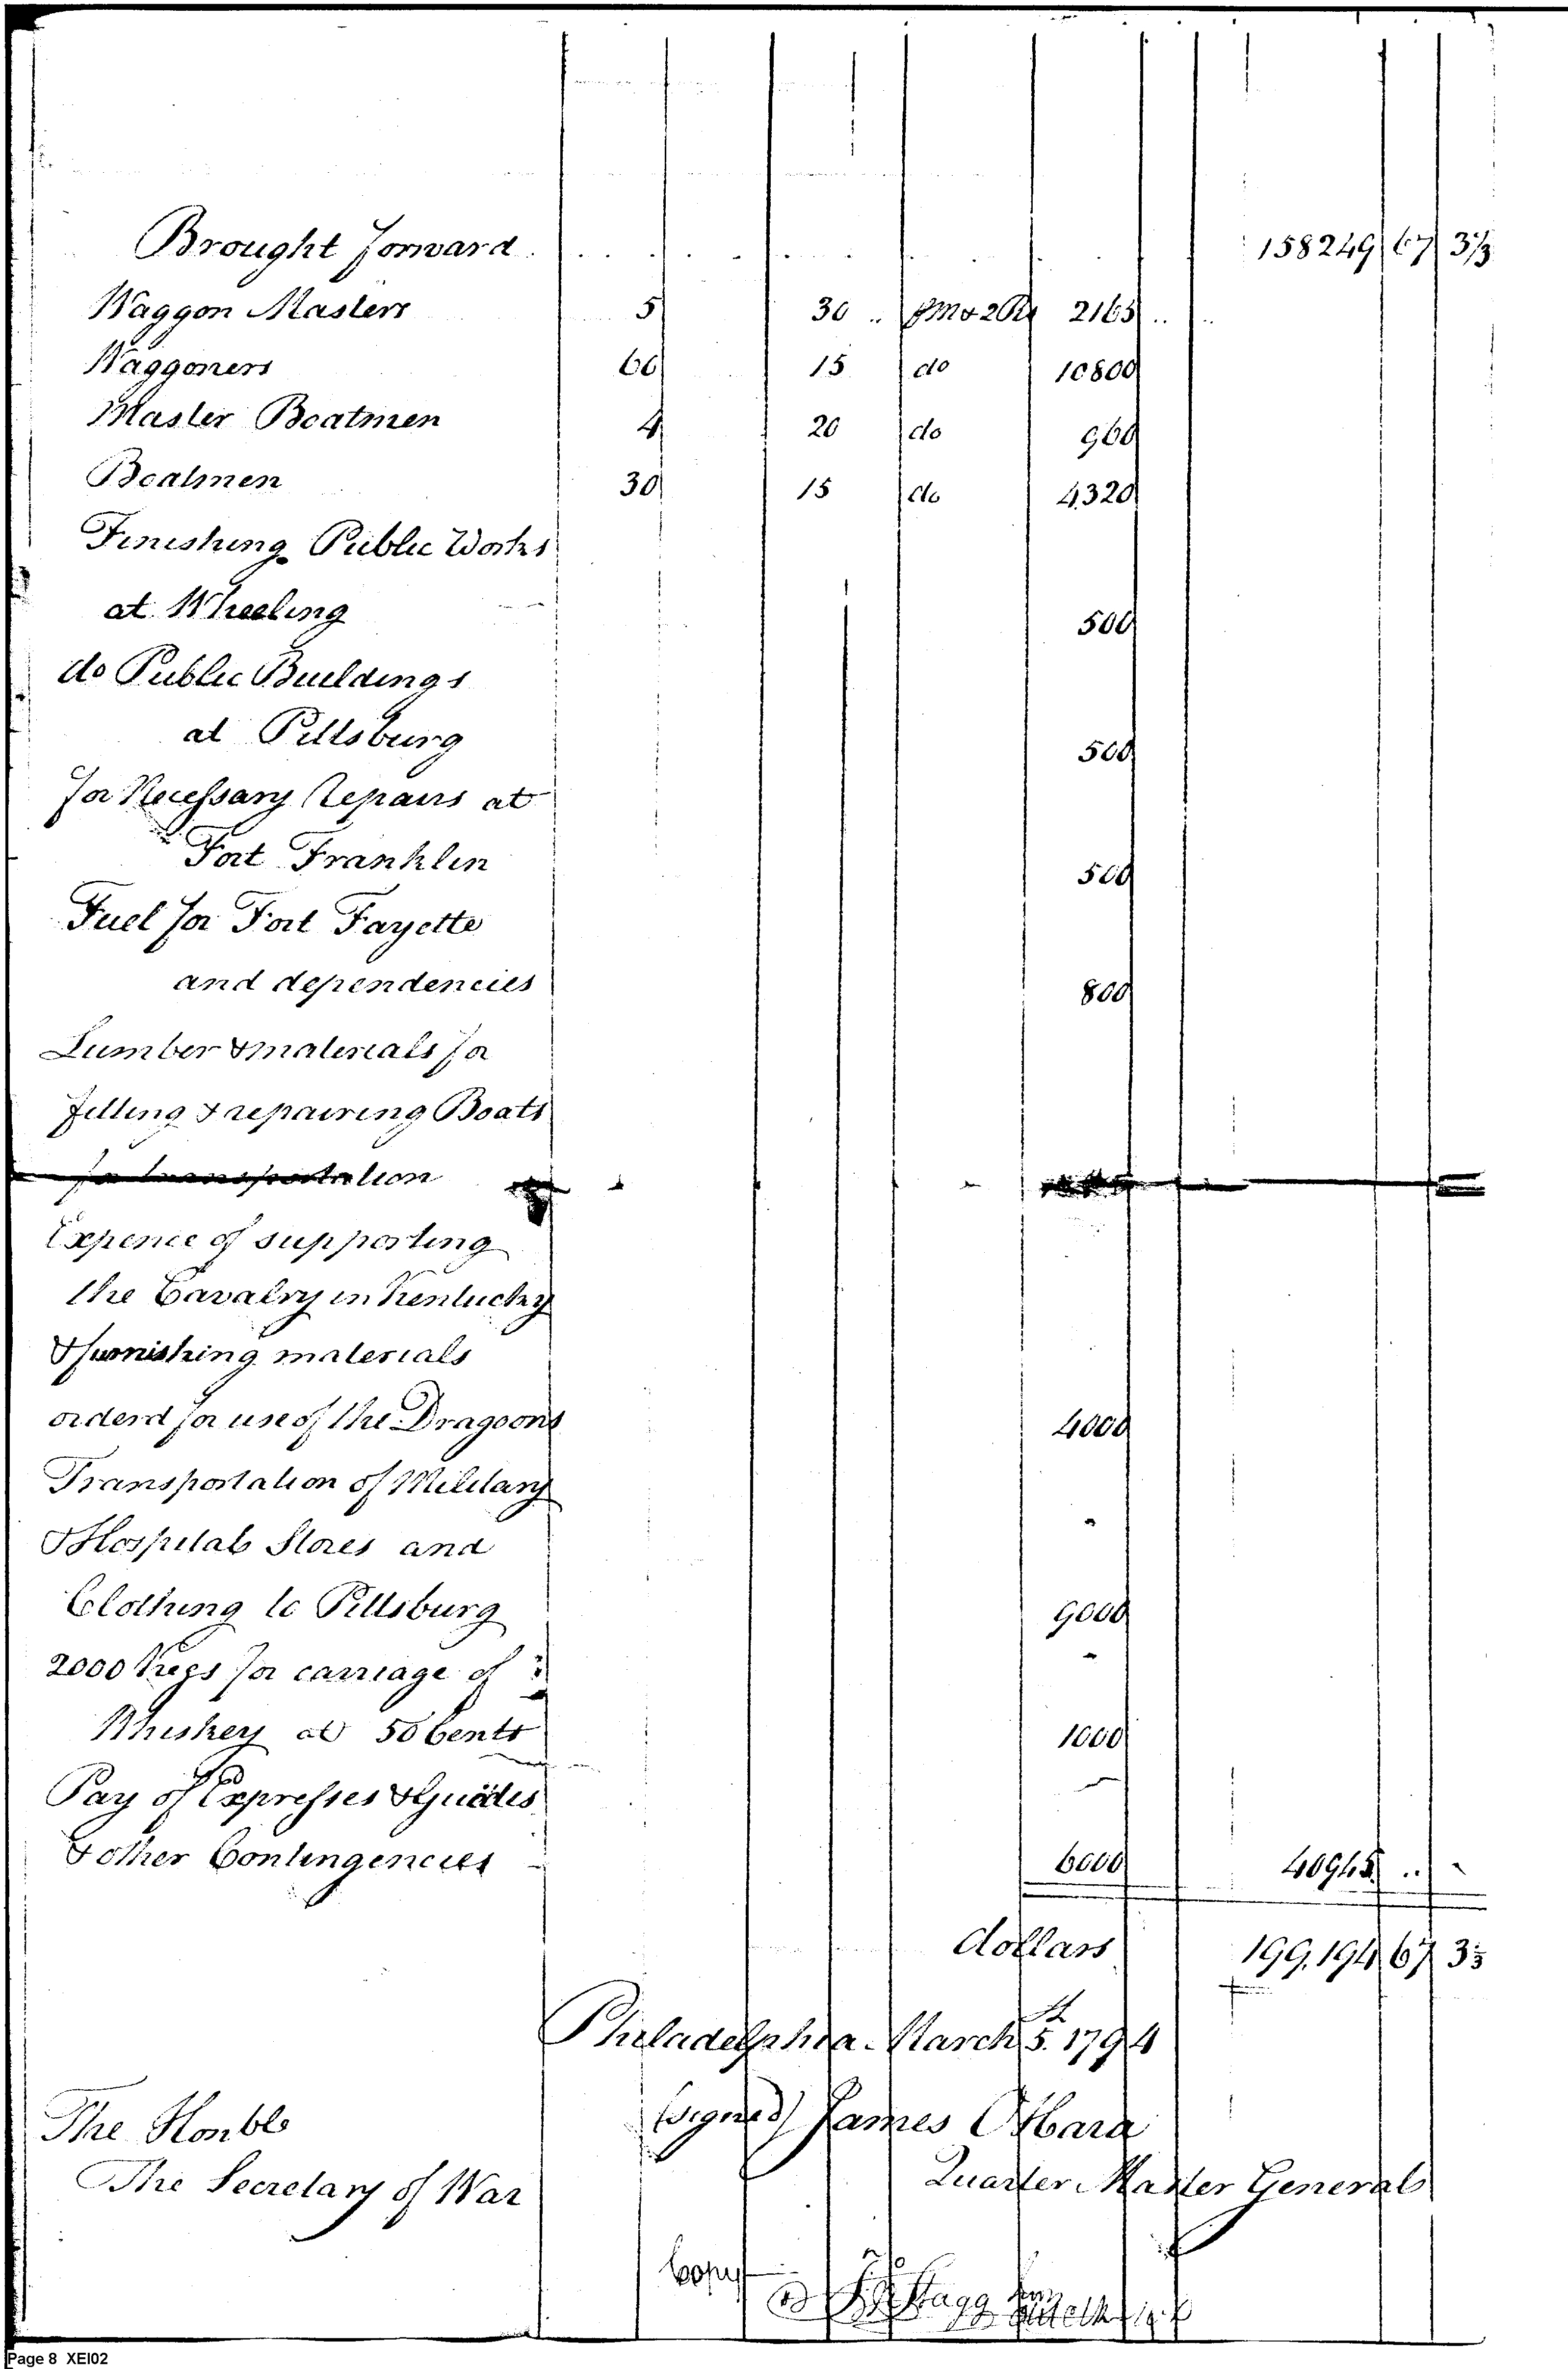 Brought forward . . . . . . . . . 158249 67 3⅓
Waggon Masters 5 30 .. 2165 ..
Waggoners 60 15 do 10800
Master Boatmen 4 20 do 960
Boatmen 30 15 do 4320
Finishing Public Works
at Wheeling 500
do Public Buildings
at Pittsburg 500
for Necessary Repairs at
Fort Franklin 500
Fuel for Fort Fayette
and dependencies 800
Lumber & materials for
fitting & repairing Boats
for transportation
Expence of supporting
the Cavalry in Kentucky
& furnishing materials
orderd for use of the Dragoons 4000
Transportation of Military
& Hospital Stores and
Clothing to Pittsburg 9000
2000 Kegs for carriage of
Whiskey at 50 Cents 1000
Pay of Expresses & Guides
& other Contingencies 6000 40945 ..
dollars 199,194 67 3⅓
Philadelphia March 5th. 1794
The Honble (signed) James OHara
The Secretary of War Quarter Master General
Copy
Jno Stagg Junr
Page 8 XEI02